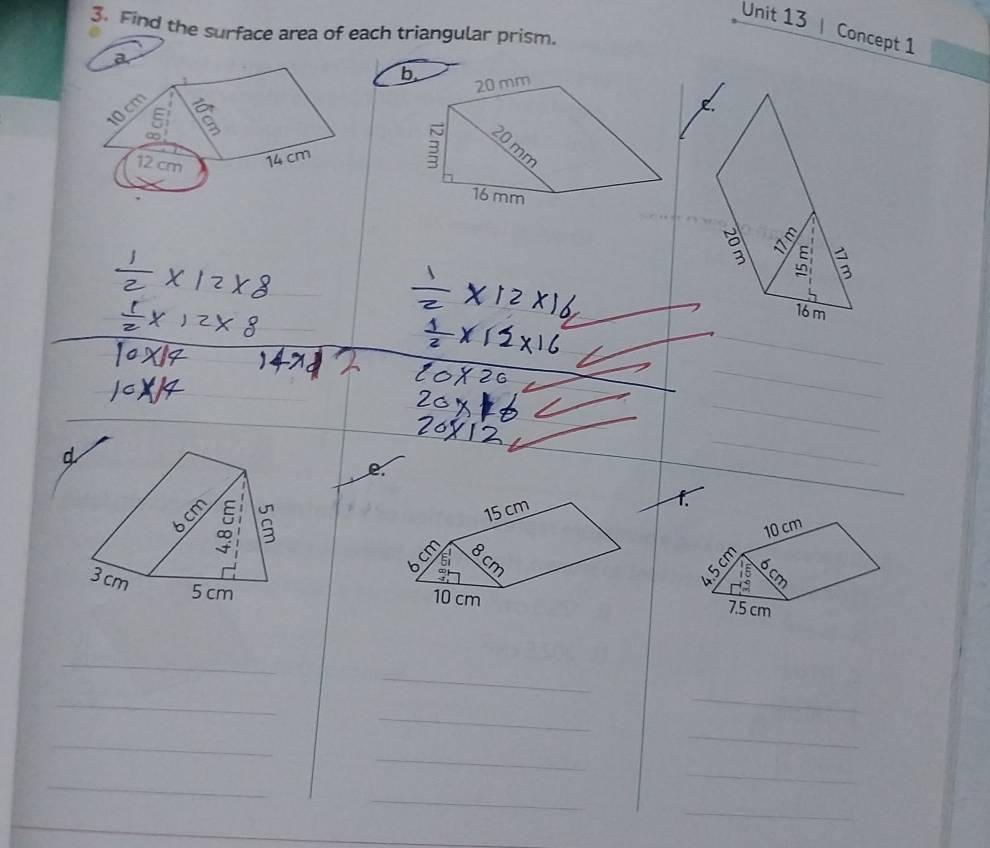 Unit 13 | Concept 1
3. Find the surface area of each triangular prism.
a.
10 cm
8 cm
10 cm
12 cm
14 cm
1/2 × 12 × 8
1/2 × 12 × 8
10×14
14×
2
10×14
b.
20 mm
12 mm
20 mm
16 mm
1/2 × 12 × 16
1/2 × 12 × 16
20×20
20×16
20×12
c.
20 m
17 m
15 m
17 m
16 m
d.
6 cm
4.8 cm
5 cm
3 cm
5 cm
e.
15 cm
6 cm
4.8 cm
8 cm
10 cm
f.
10 cm
4.5 cm
3.6 cm
6 cm
7.5 cm